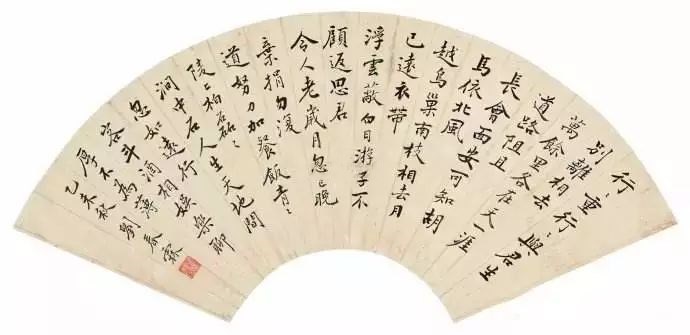 行〻重行〻與君生
別離相去
萬餘里各在天一涯
道路阻且
長會面安可知胡
馬依北風
越鳥巢南枝相去日
已遠衣帶
浮雲蔽白日游子不
顧返思君
令人老歲月忽已晚
棄捐勿復
道努力加餐飯青〻
陵上柏磊〻
澗中石人生天地間
忽如遠行
客斗酒相娛樂聊
厚不為薄
己未秋劉春霖